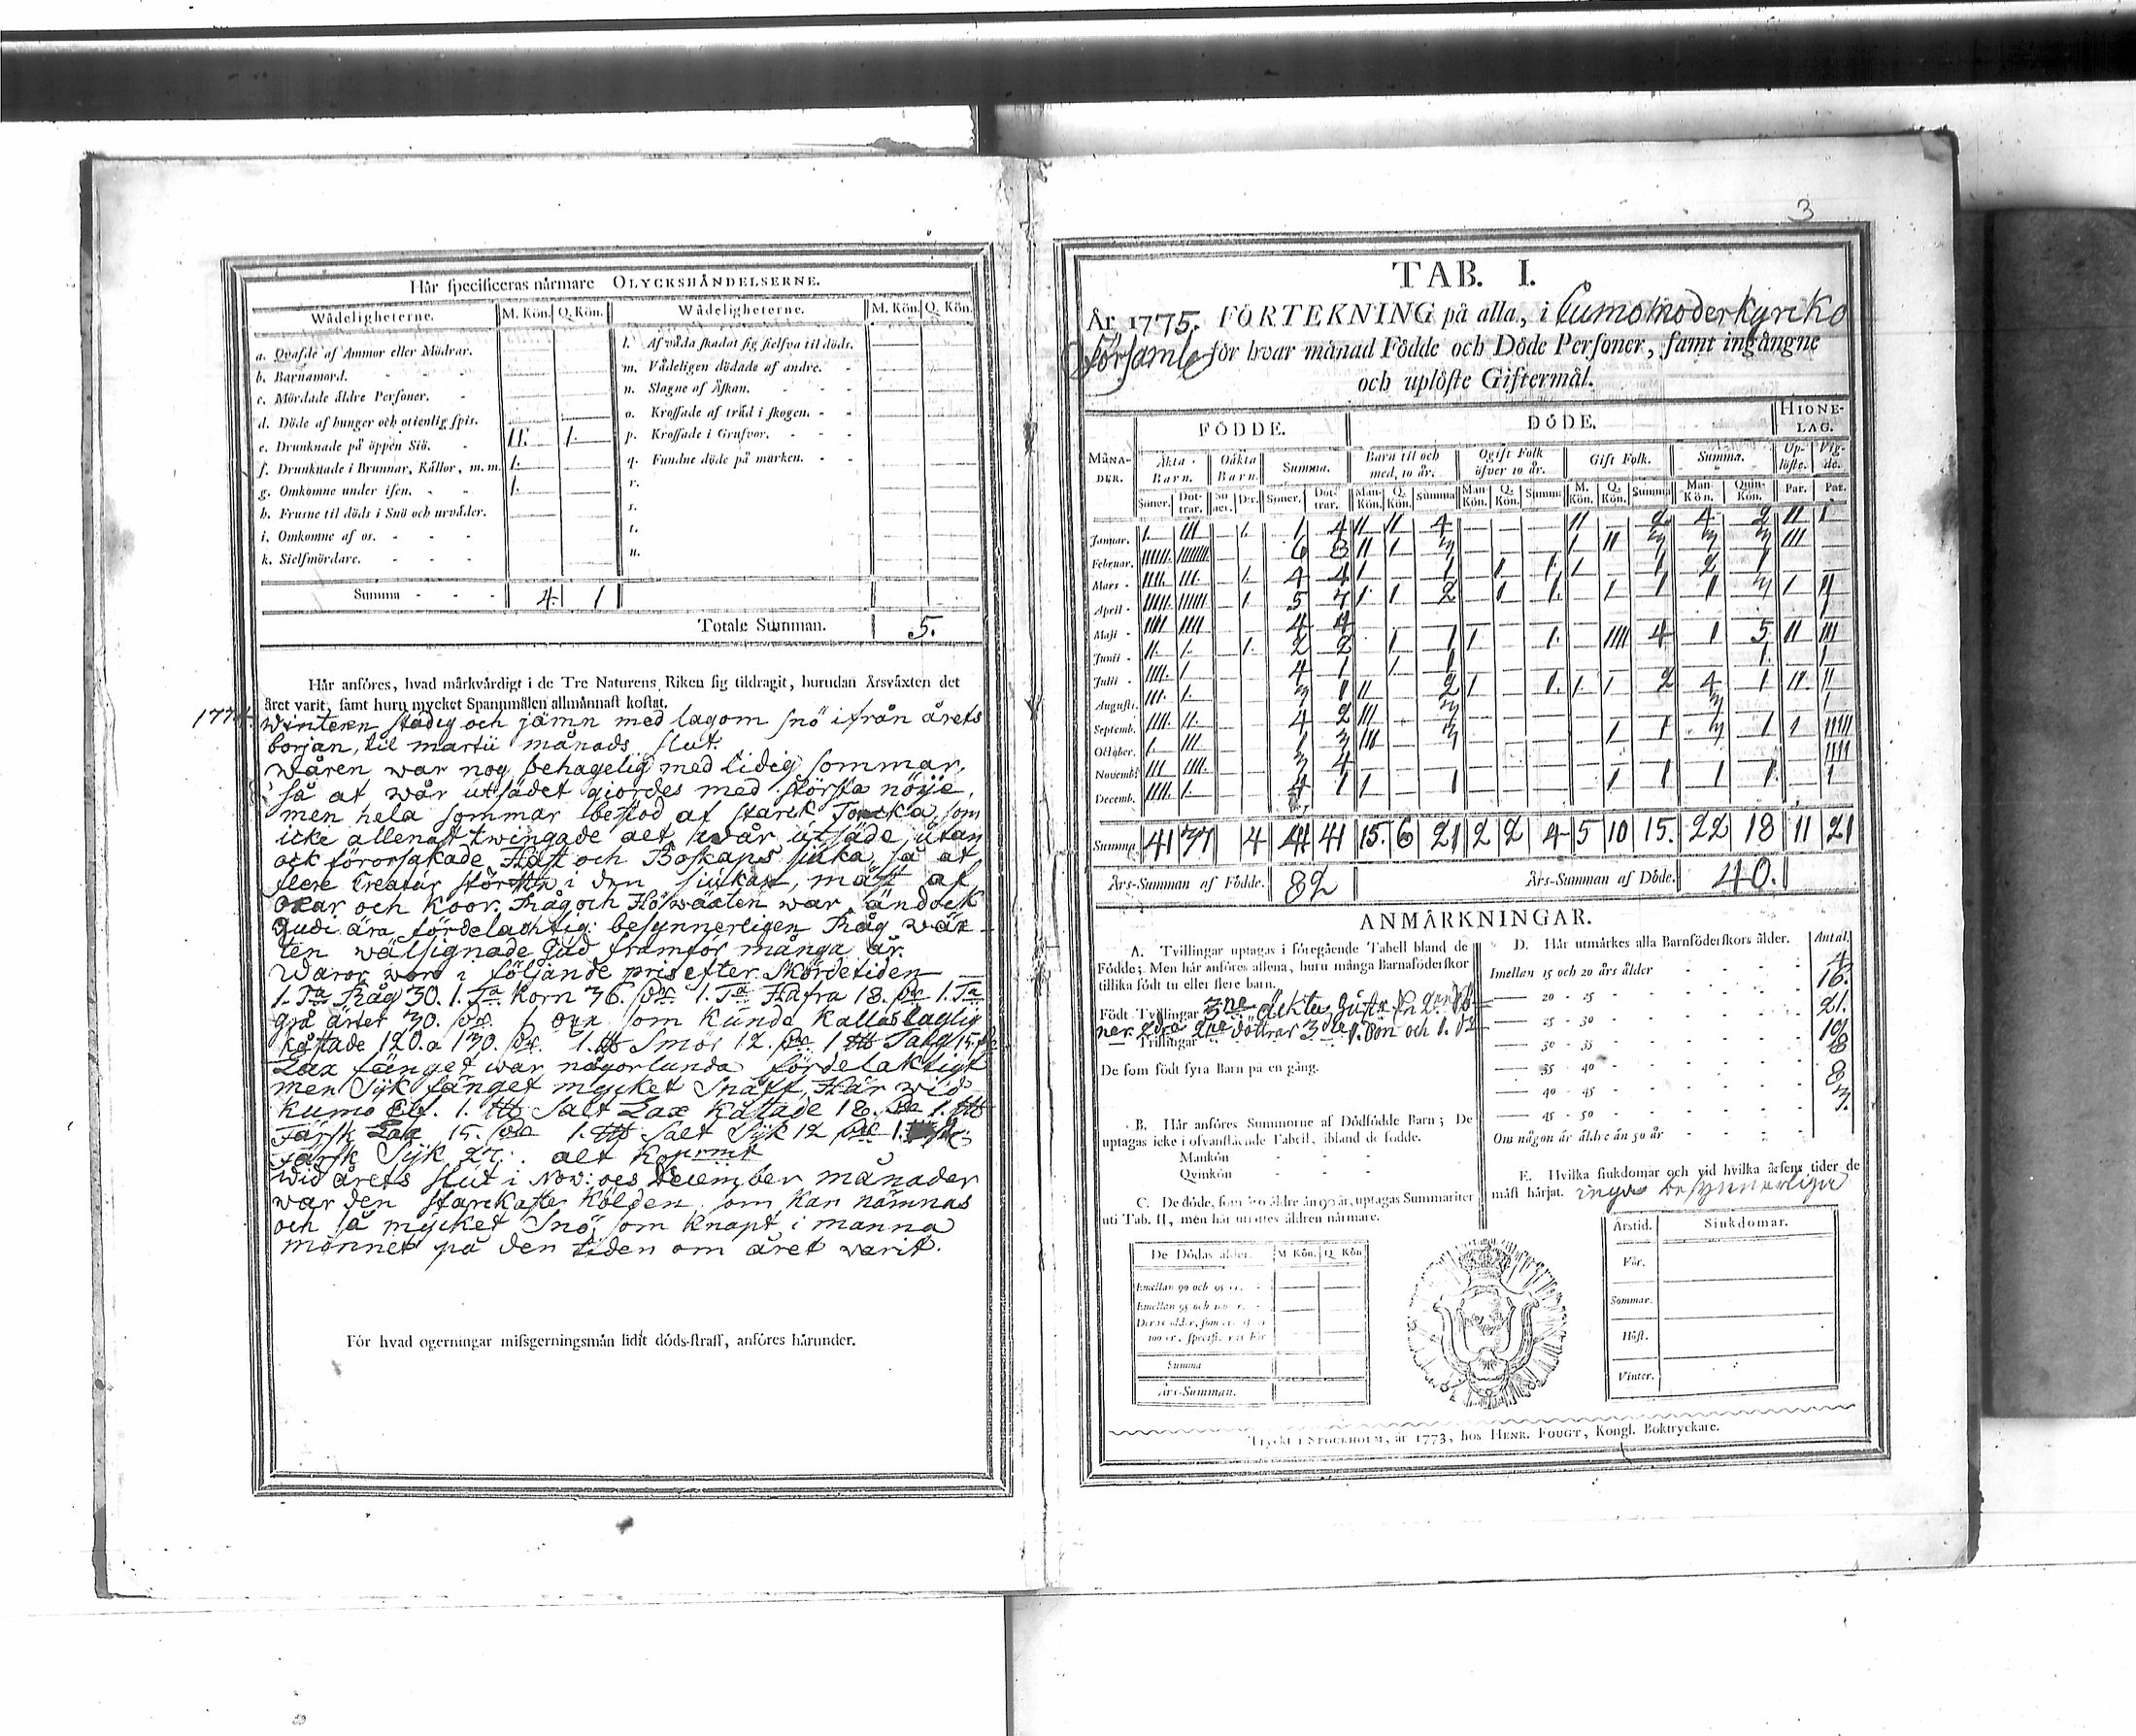 Här specificeras närmare OLYCKSHÄNDELSERNE.
Wådeligheterne. M. Kön. Q. Kön. Wådeligheterne. M. Kön. Q. Kön.
a. Qvafde af Ammor eller Mödrar.
b. Barnamord.
c. Mördade äldre Personer.
d. Döde af hunger och otienlig spis.
e. Drunknade på öppen Siö. II. 1.
f. Drunknade i Brunnar, Källor, m. m. 1.
g. Omkomne under isen. 1.
h. Frusne til döds i Snö och urväder.
i. Omkomne af os.
k. Sielfmördare.
l. Af våda skadat sig sielfva til döds.
m. Vådeligen dödade af andre.
n. Slagne af Åskan.
o. Krossade af träd i skogen.
p. Krossade i Grufvor.
q. Fundne döde på marken.
r.
s.
t.
u.
Summa 4. 1
Totale Summan. 5.
Här anföres, hvad märkvärdigt i de Tre Naturens Riken sig tildragit, hurudan Årsväxten det
året varit, samt huru mycket Spannmålen allmännast kostat.
Winteren stadig och jämn med lagom snö ifrån årets
början, til martii månads slut.
Wåren war nog behagelig med tidig sommar,
så at wår utsädet giordes med största nöije,
men hela sommar bestod af starck Torcka, som
icke allenast twingade alt wår utsäde, utan
ock förorsakade Häst och Boskaps siuka, så at
flere Creatur störtte i den siukan, mäst af
oxar och Koor. Råg och Höwäxten war ändock
Gudi ära fördelachtig: besynnerligen Råg wäx-
ten wälsignade Gud framför många år.
Waror woro i följande pris efter Skördetiden
1. Ta Råg 30. 1. Ta Korn 36. 1. Ta Hafra 18. 1. Ta
grå ärter 30. 1 oxe som Kunde Kallas
Kåstade 120. a 130. 1. Smör 12. 1 Talg 15.
Lax fånget war någorlunda fördelaktigt
men Sijk fånget mycket Snått, Här wid
Kumo Elf. 1. Salt Lax Kåstade 18. 1.
Färsk Lax 15. 1. Salt Sijk 12 1.
Färsk Sijk alt Kopermt
Wid årets slut i Nov: oes Decemb er månader
war den starckaste Kölden som Kan nämnas
och så mycket Snö som Knapt i manna
minnet på den tiden om året warit.
För hvad ogerningar missgerningsmän lidit döds-straff, anföres härunder.
3
TAB. I.
År 1775. FÖRTEKNING på alla, i Cumo moderkyrko
församl. för hvar månad Födde och Döde Personer, samt ingångne
och uplöste Giftermål.
MÅNA-DER. FÖDDE. DÖDE. HIONE-LAG.
Äkta Barn. Oäkta Barn. Summa. Barn til och med, 10 år. Ogift Folk öfver 10 år. Gift Folk. Summa. Up-löste. Vig-de.
Söner. Dot-trar. Sö ner. Dr. Söner. Dot-trar. Man-Kön. Q. Kön. Summa Man Kön. Q. Kön. Summ. M. Kön. Q. Kön. Summa Man Kön. Quin-Kön. Par. Par.
Januar. 1. III 1. 1 4 II II 4 II 2 4 2 II 1
Februar. IIIIII IIIIIIII 6 8 II 1 3 1 II 3 3 3 III
Mars IIII. III. 1. 4 4 1 1 1 1. 1 1 2 1
April IIIII IIIIII 1 5 7 1 1 2 1 1. 1 1 1 3 1 II
Maji IIII IIII 4 4 1
Junii II. 1. 1. 2 2 1 1 1 1. IIII 4 1 5 II III
Julii IIII. 1 4 1 1 1 1. 1
Augusti. III. 1. 3 1 II 2 1 1. 1. 1 2 4 1 II. II
Septemb. IIII. II. 4 2 III 3 3 1
October. 1. III 1 3 III 3 1 1 3 1 1 IIIII
Novemb. III IIII. 3 4 IIII
Decemb. IIII. 1. 4 1 1 1 1 1 1 1. 1
Summa 41 37 4 41 41 15. 6 21 2 2 4 5 10 15. 22 18 11 21
Års-Summan af Födde. 82 Års-Summan af Döde. 40.
ANMÄRKNINGAR.
A. Tvillingar uptagas i föregående Tabell bland de
Födde; Men här anföres allena, huru många Barnaföderskor
tillika födt tu eller flere barn.
Födt Tvillingar 3ne
döttrar 3die 1. Son och 1.
Trillingar
De som födt fyra Barn på en gång.
B. Här anföres Summorne af Dödfödde Barn; De
uptagas icke i ofvanstående Tabell, ibland de födde.
Mankön
Qvinkön
C. De döde, som äro äldre än 90 år, uptagas Summariter
uti Tab. II, men här utsättes åldren närmare.
De Dödas ålder. M. Kön. Q. Kön
Emellan 90 och 95 år.
Emellan 95 och 100 år.
Summa
Års-Summan.
D. Här utmärkes alla Barnföderskors ålder. Antal.
Imellan 15 och 20 års ålder 4
20 - 25 16.
25 - 30 21.
30 - 35
35 - 40 8
40 - 45 8
45 - 50 3.
Om någon är äldre än 50 år
E. Hvilka siukdomar och vid hvilka årsens tider de
mäst härjat. inga besynnerliga
Årstid. Siukdomar.
Vår.
Sommar.
Höst.
Vinter.
Tryckt i STOCKHOLM, år 1773, hos HENR. FOUGT, Kongl. Boktryckare.